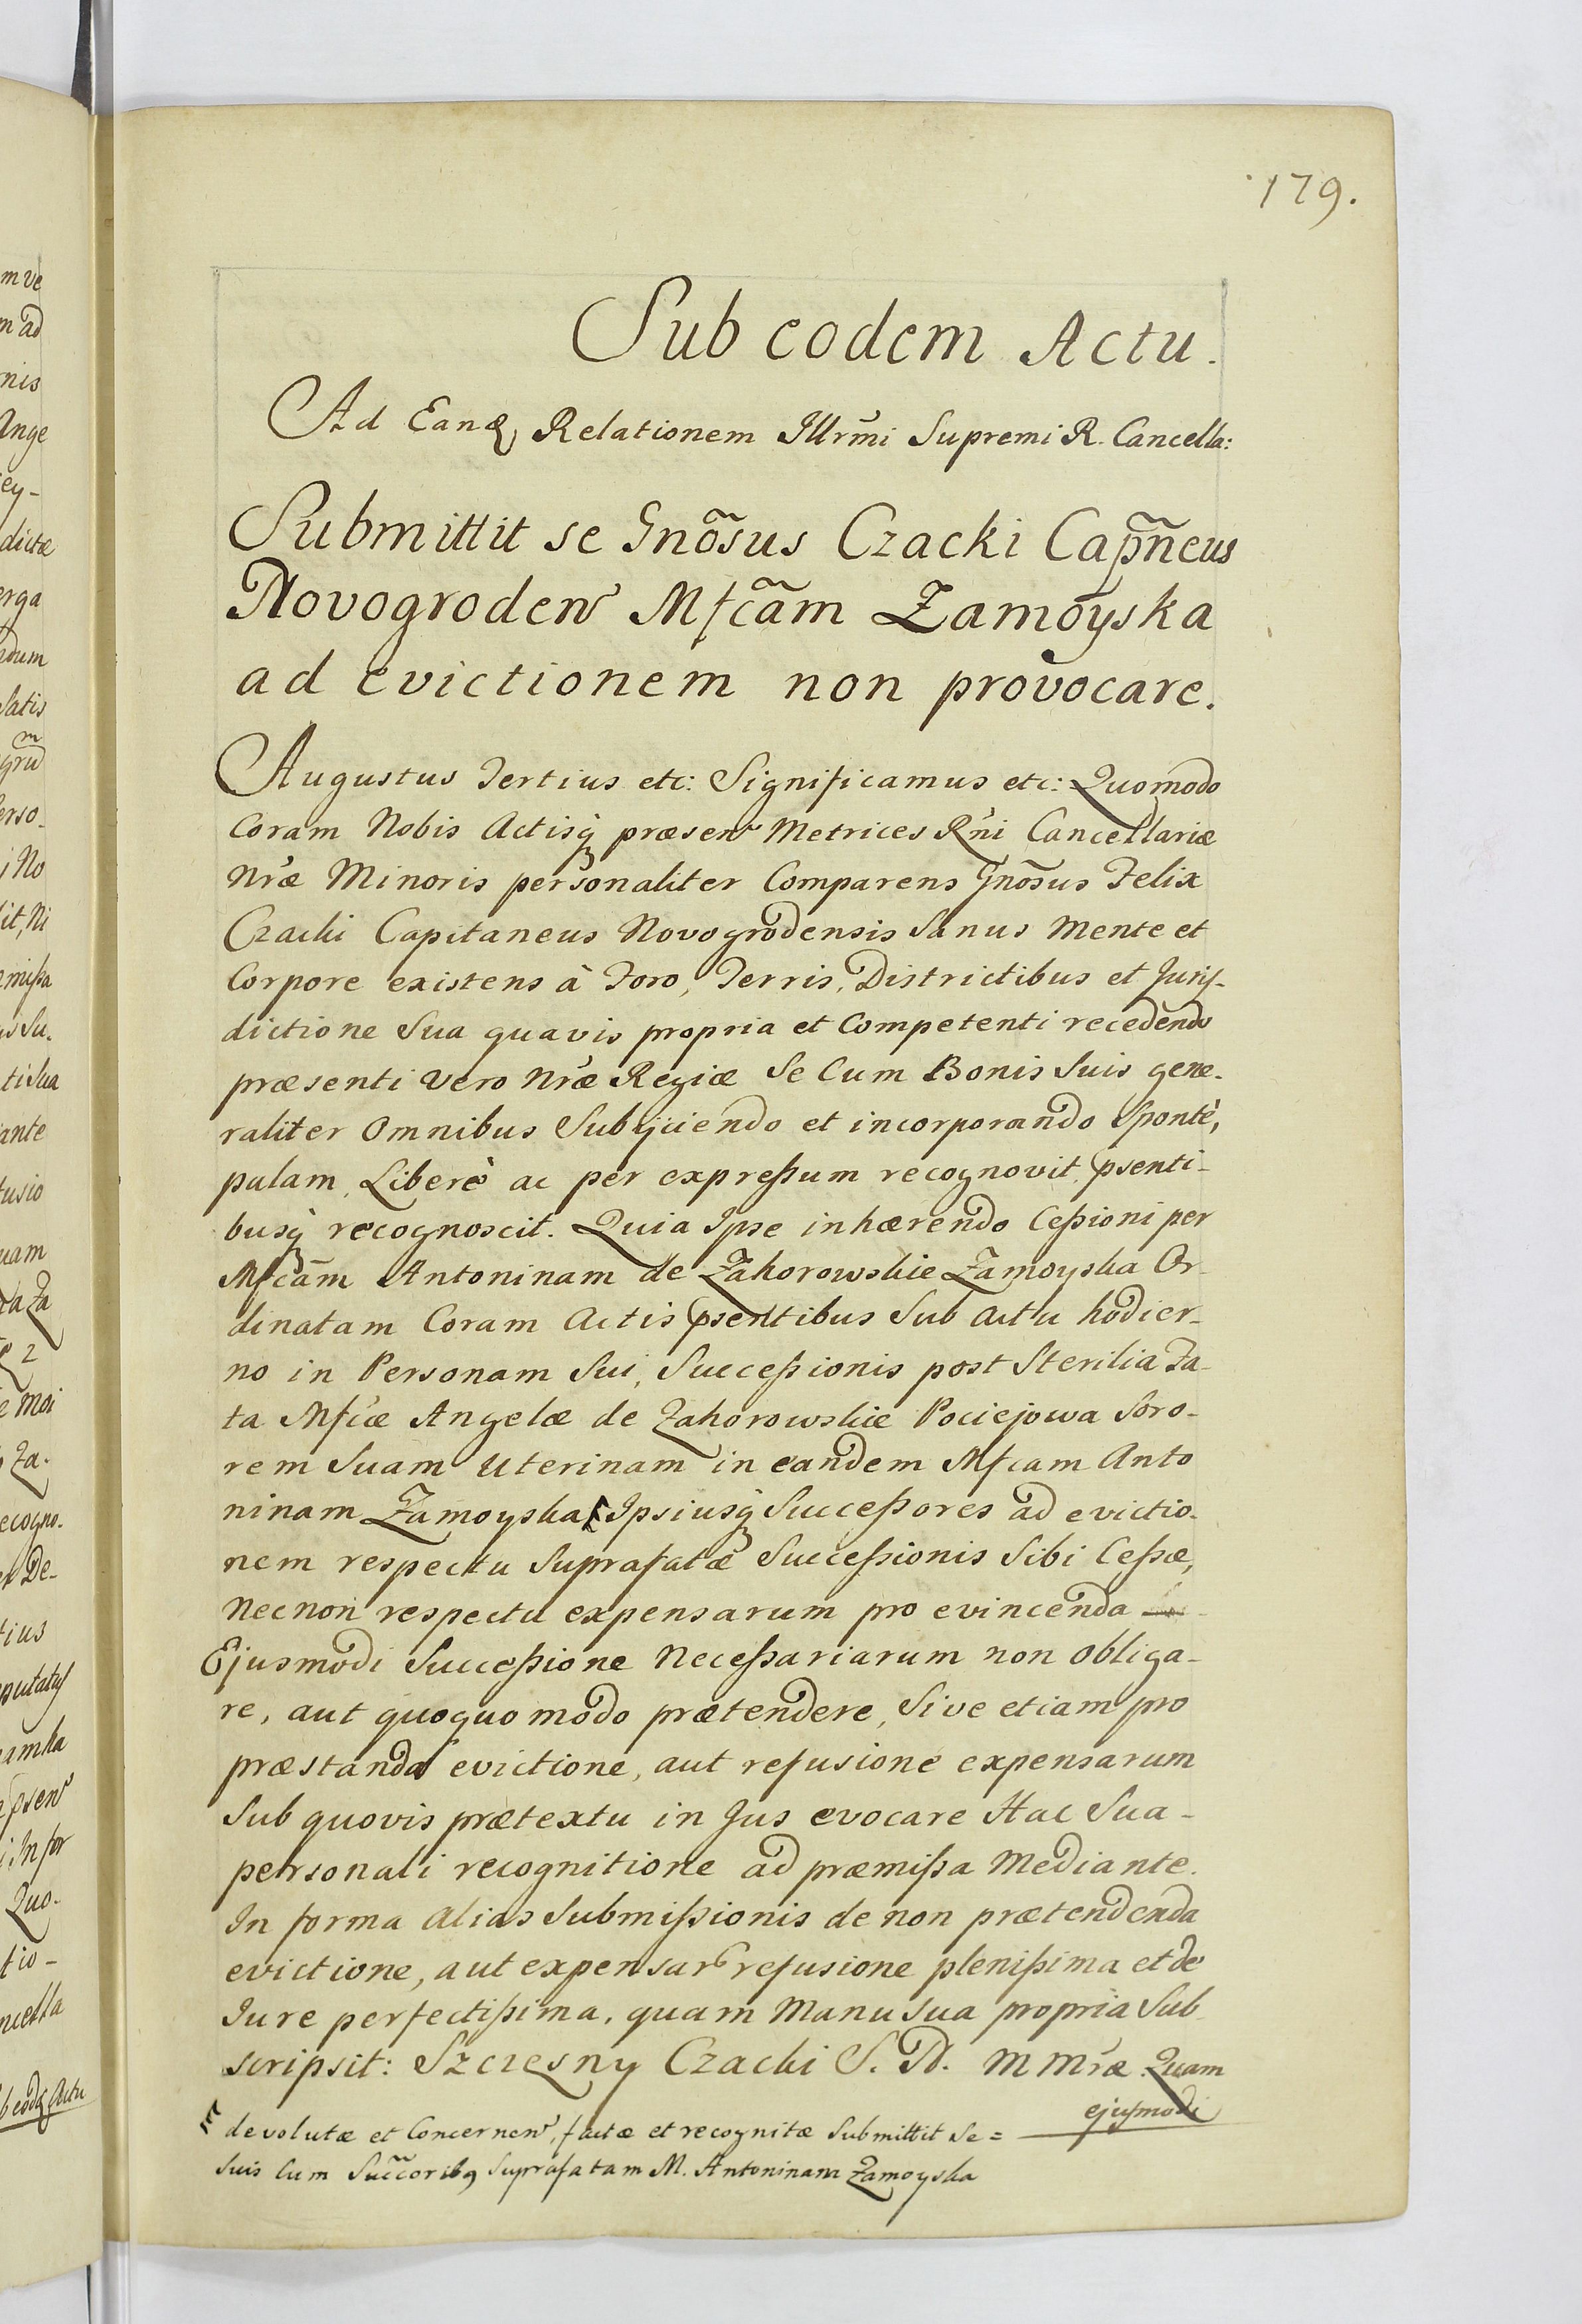 179.
Sub eodem Actu.
Ad Eandẽ Relationem Illr̃mi Supremi R. Cancella:
Submittit se Gnõsus Czacki Cap̃ñeus
Novogroden̾ Mfcãm Zamoyska
ad evictionem non provocare.
Augustus Tertius etc: Significamus etc: Quomodo
Coram Nobis Actisq́ præsen̾ Metrices Rñi Cancellariæ
Nr̃æ Minoris personaliter Comparens Gnõsus Felix
Czacki Capitaneus Novogrodensis Sanus Mente et
Corpore existens à Foro, Terris, Districtibus et Juris-
dictione Sua quavis propria et Competenti recedendo
præsenti Vero Nr̃æ Regiæ Se Cum Bonis Suis gene-
raliter Omnibus Subijciendo et incorporando Spontè,
palam, Liberè ac per expreßum recognovit, p̃senti-
busq́ recognoscit. Quia Ipse inhærendo Ceßioni per
Mfcãm Antoninam de Zahorowskie Zamoyska Or-
dinatam Coram Actis p̃sentibus Sub Actu hodier-
no in Personam Sui, Succeßionis post Sterilia Fa-
ta Mfcæ Angelæ de Zahorowskie Pociejowa Soro-
rem Suam Uterinam in eandem Mfcam Anto
ninam Zamoyska Ipsiusq́ Succeßores ad evictio-
nem respectu Suprafatæ Succeßionis Sibi Ceßæ,
Necnon respectu expensarum pro evincenda
Ejusmodi Succeßione Neceßariarum non obliga-
re, aut quoquo modo prætendere, Sive etiam pro
præstanda evictione, aut refusione expensarum
Sub quovis prætextu in Jus evocare Hac Sua-
personali recognitione ad præmißa Mediante.
In forma alias Submißionis de non prætendenda
evictione, aut expensar̃ refusione plenißima et de
Jure perfectißima, quam Manu Sua propria Sub
scripsit: Szczęsny Czacki S. N. M Mr̃æ. Quam
ejusmodi
devolutæ et Concernen̾, factæ et recognitæ Submittit Se =
Suis Cum Succ̃oribq Suprafatam M. Antoninam Zamoyska